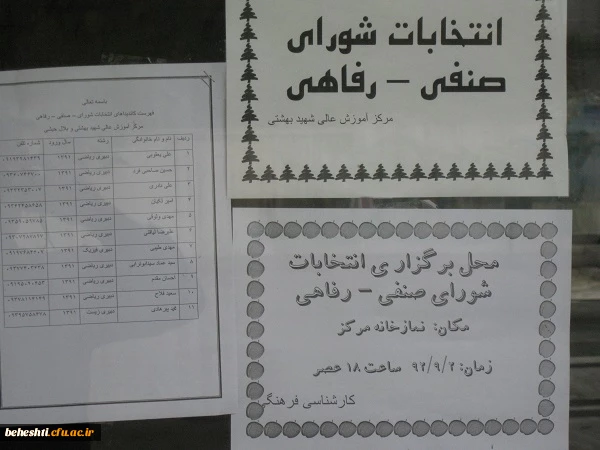 انتخابات شورای
صنفی - رفاهی
مرکز آموزش عالی شهید بهشتی
محل برگزاری انتخابات
شورای صنفی - رفاهی
مکان: نمازخانه مرکز
زمان: ۹۲/۹/۲ ساعت ۱۸ عصر
کارشناسی فرهنگی
باسمه تعالی
فهرست کاندیداهای انتخابات شورای - صنفی - رفاهی
مرکز آموزش عالی شهید بهشتی و بلال حبشی
ردیف نام و نام خانوادگی رشته سال ورود شماره تلفن
۱ علی یعقوبی دبیری ریاضی ۱۳۹۱
۲ حسین صاحبی فرد دبیری ریاضی ۱۳۹۱
۳ علی نادری دبیری ریاضی ۱۳۹۱
۴ امیر دبیری ریاضی ۱۳۹۱
۵ مهدی وثوقی دبیری ریاضی ۱۳۹۱
۶ علیرضا دبیری ریاضی ۱۳۹۱
۷ مهدی طیبی دبیری فیزیک ۱۳۹۱
۸ سید حماد دبیری ریاضی ۱۳۹۱
۹ احسان مقدم دبیری ریاضی ۱۳۹۱
۱۰ سعید فلاح دبیری ریاضی ۱۳۹۱
۱۱ دبیری زیست ۱۳۹۱
beheshti.cfu.ac.ir